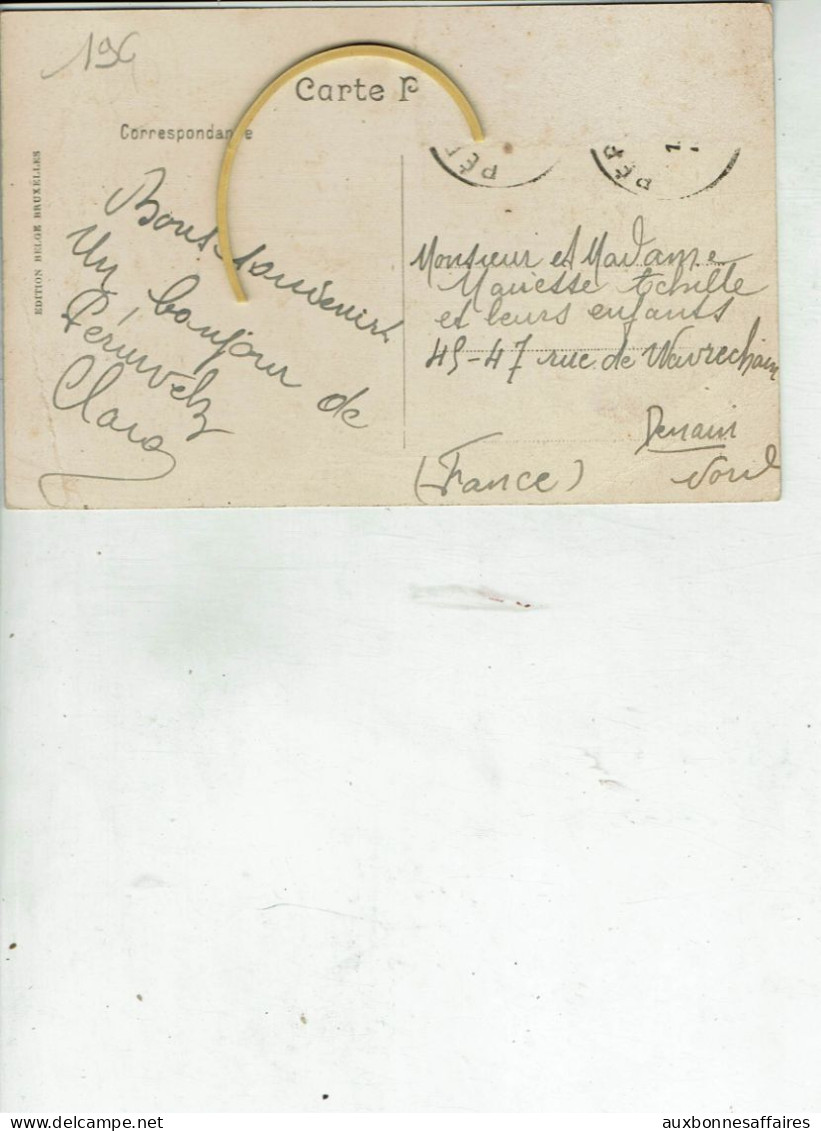 194
Carte P
Correspondance
EDITION BELGE BRUXELLES
Bons souvenirs
Un bonjour de
Péruwelz
Clara
PÉR
PÉR
1
Monsieur et Madame
Achille
et leurs enfants
45-47 rue de Wavrechain
Denain
Nord
(France)
auxbonnesaffaires